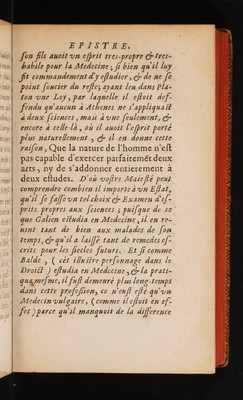 EPISTRE.
son fils auoit vn esprit tres-propre & tres-
habile pour la Medecine, si bien qu'il luy
fit commandement d'y estudier, & de ne se
point soucier du reste, ayant leu dans Pla-
ton vne Loy, par laquelle il estoit def-
fendu qu'aucun à Athenes ne s'appliquast
à deux sciences, mais à vne seulement, &
encore à celle-là, où il auoit l'esprit porté
plus naturellement, & il en donne cette
raison, Que la nature de l'homme n'est
pas capable d'exercer parfaitemẽt deux
arts, ny de s'addonner entierement à
deux estudes. D'où vostre Maiesté peut
comprendre combien il importe à vn Estat,
qu'il se fasse vn tel choix & Examen d'es-
prits propres aux sciences; puisque de ce
que Galien estudia en Medecine, il en re-
uint tant de bien aux malades de son
temps, & qu'il a laissé tant de remedes es-
crits pour les siecles futurs. Et si comme
Balde, (cét illustre personnage dans le
Droict) estudia en Medecine, & la prati-
qua mesme, il fust demeuré plus long-temps
dans cette profession, ce n'eust esté qu'vn
Medecin vulgaire, (comme il estoit en ef-
fet) parce qu'il manquoit de la difference